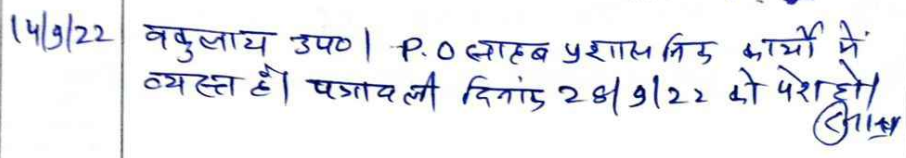 14/9/22 वकुलाय उप० | P.O साहब प्रशासनिक कार्यो में
व्यस्त है| पत्रावली दिनांक 28/9/22 को पेश हो|